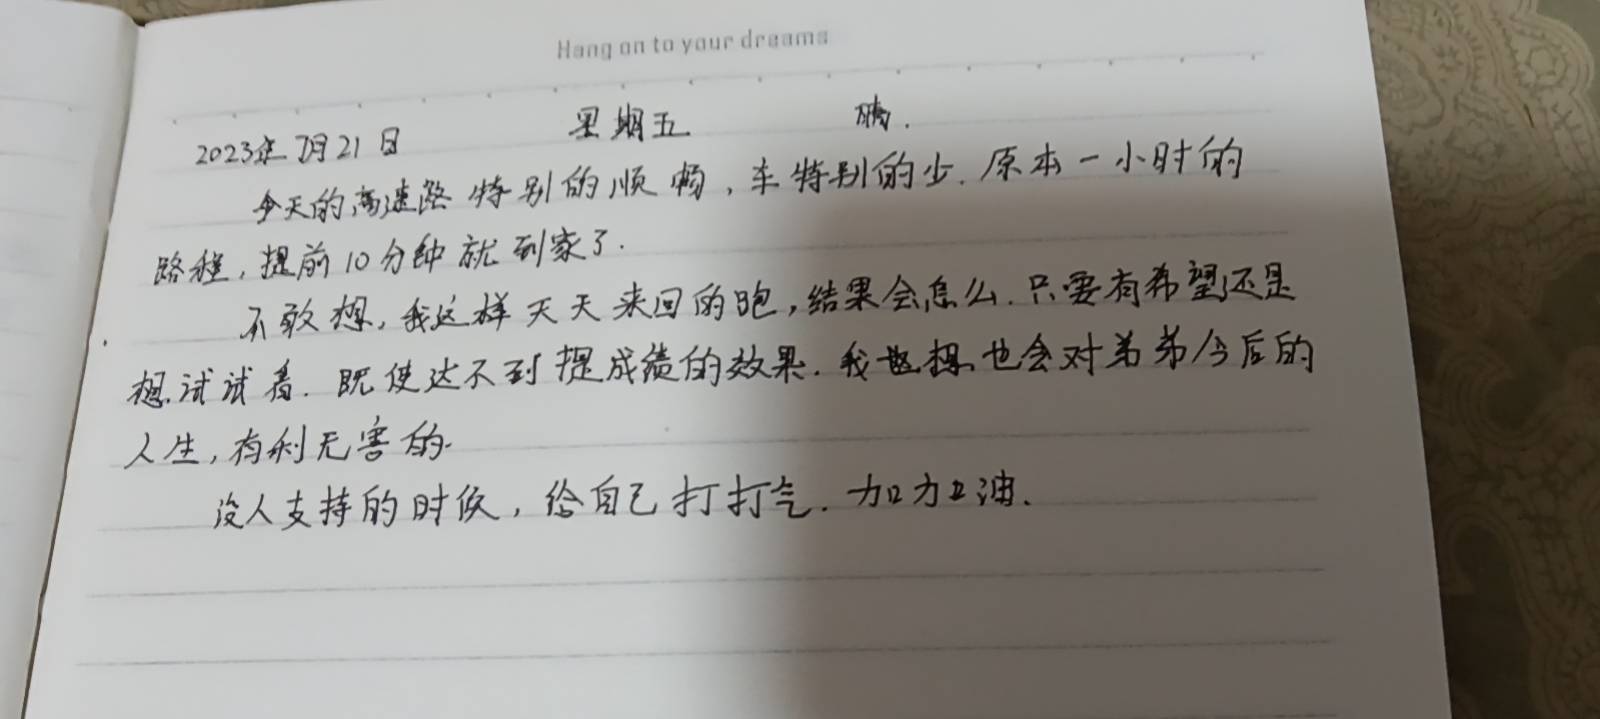 Hang on to your dreams
2023年7月21日 星期五
今天的高速路特别的顺畅,车特别的少.原本一小时的
路程,提前10分钟就到家了.
不敢想,我这样天天来回的跑,结果会怎么.只要有希望还是
想试试看.既使达不到提成绩的效果.我想也会对弟弟今后的
人生,有利无害的.
没人支持的时候,给自己打打气.加加油.